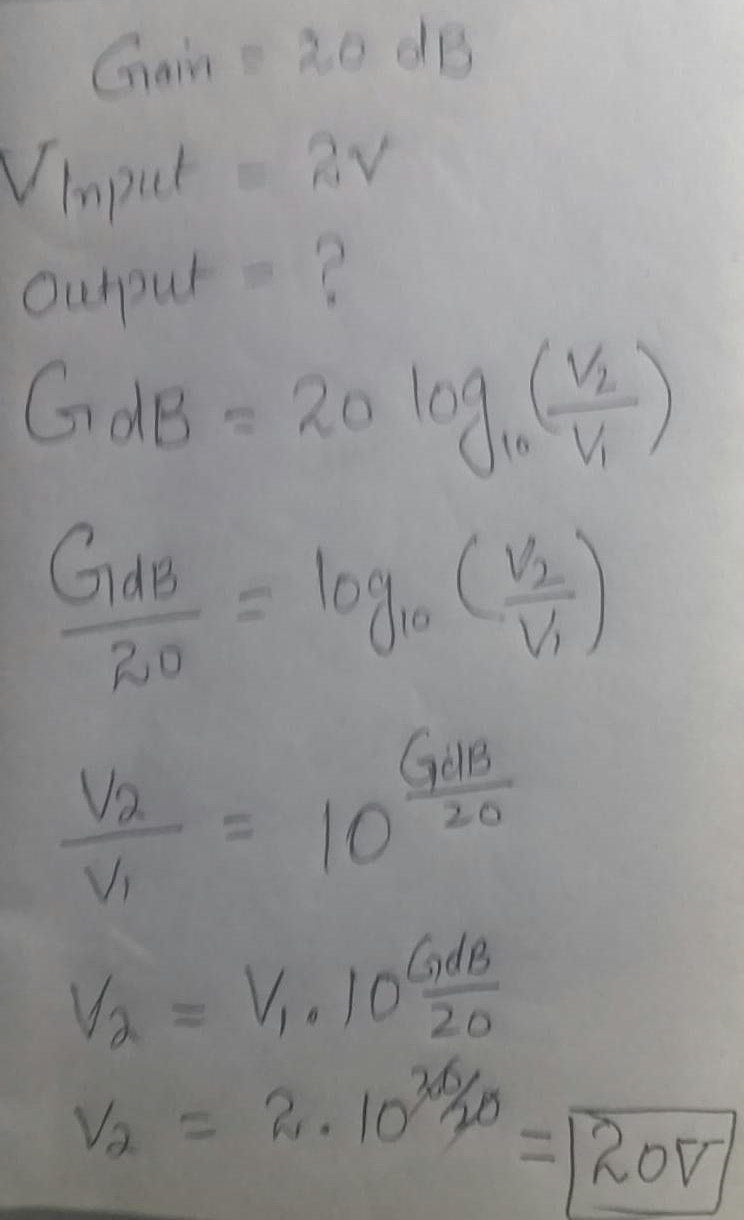 Gain = 20 dB
V Input = 2V
Output = ?
G dB = 20 log₁₀ (V₂/V₁)
G dB/20 = log₁₀ (V₂/V₁)
V₂/V₁ = 10^(G dB/20)
V₂ = V₁ . 10^(G dB/20)
V₂ = 2 . 10^(20/20) = 20V